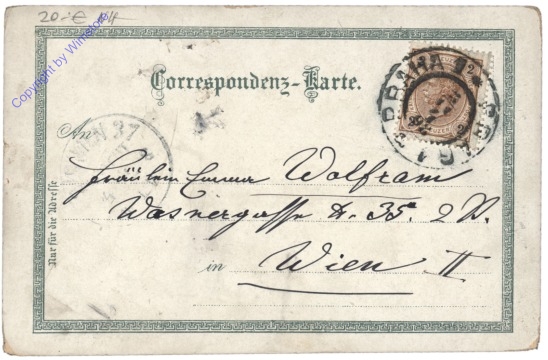 20.-€
Copyright by Winstore
Correspondenz-Karte.
PRAHA 1
An
WIEN 2/7
Fräulein Emma Wolfram
Wasnergasse Nr. 35. 2 St.
in Wien II
Nur für die Adresse